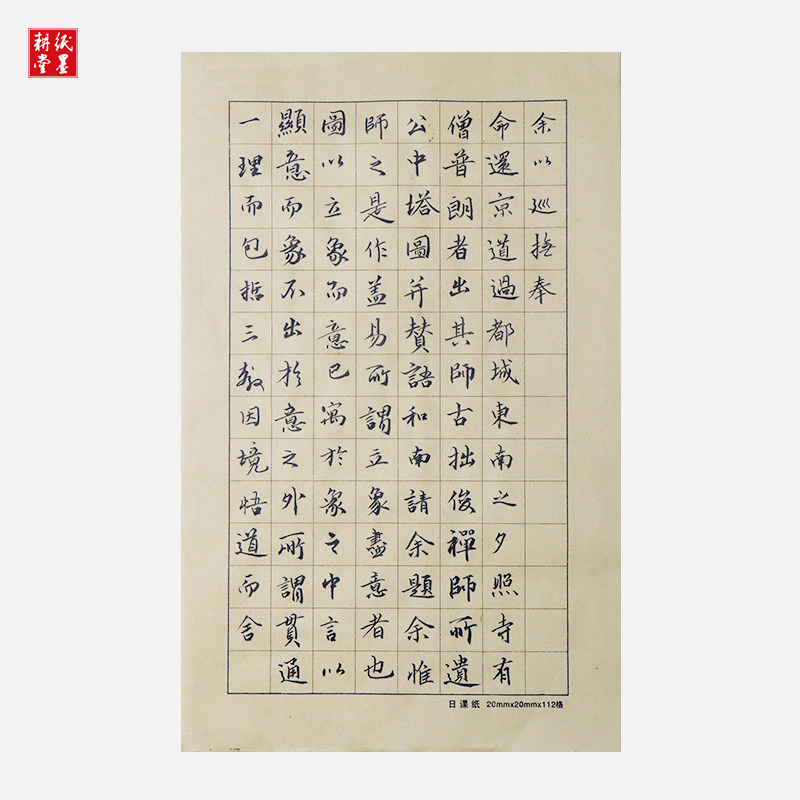 纸墨
耕堂
余以巡撫奉
命還京道過都城東南之夕照寺有
僧普朗者出其師古拙俊禪師所遺
公中塔圖并贊語和南請余題余惟
師之是作蓋易所謂立象盡意者也
圖以立象而意已寓於象之中言以
顯意而象不出於意之外所謂貫通
一理而包括三教因境悟道而舍
日课纸 20mmx20mmx112格